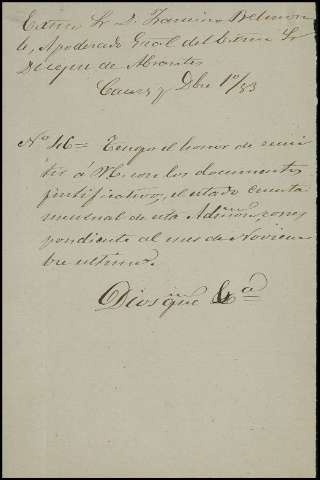 Exmo Sr D. Francisco Belmon
te, Apoderado Gral del Exmo Sr
Duque de Abrantes
Caceres y Dbre 1º/83
Nº 46= Tengo el honor de remi
tir á V. con los documentos
justificativos, el estado cuenta
mensual de esta Admon, corres
pondiente al mes de Noviem
bre ultimo.
Dios que &a